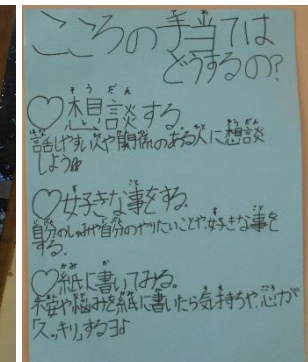 こころの手当ては
どうするの?
♡想談する。
話しやすい人や関係のある人に想談
しよう
♡好きな事をする。
自分のしゅみや自分のやりたいことや、好きな事を
する。
♡紙に書いてみる。
不安や悩みを紙に書いたら気持ちや、心が
「スッキリ」するヨ♪